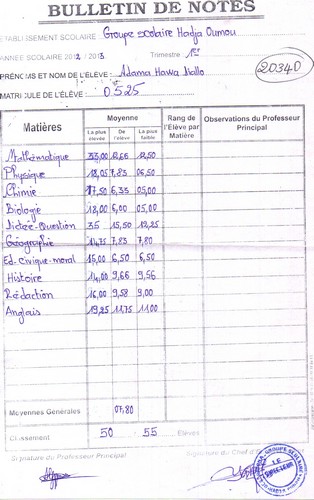 BULLETIN DE NOTES
ETABLISSEMENT SCOLAIRE : Groupe scolaire Hadja Oumou
ANNÉE SCOLAIRE 2012 / 2013 Trimestre 1er
PRÉNOMS ET NOM DE L'ÉLÈVE : Adama Hawa Diallo
20340
MATRICULE DE L'ÉLÈVE : 0525
Matières Moyenne Rang de l'Elève par Matière Observations du Professeur Principal
La plus élevée De l'élève La plus faible
Mathématique 33,00 12,66 12,50
Physique 18,05 7,83 06,50
Chimie 17,50 6,33 05,00
Biologie 18,00 6,00 05,00
Dictée-Question 35 15,50 12,25
Géographie 14,75 7,83 7,80
Ed-civique-moral 15,00 6,50 6,50
Histoire 14,00 9,66 9,56
Rédaction 16,00 9,58 9,00
Anglais 19,25 11,75 11,00
Moyennes Générales 07,80
Classement 50 55 Elèves
Signature du Professeur Principal Signature du Chef d'
LE DIRECTEUR